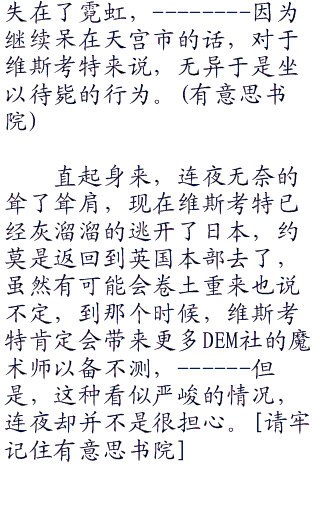 失在了霓虹，--------因为
继续呆在天宫市的话，对于
维斯考特来说，无异于是坐
以待毙的行为。(有意思书
院)
直起身来，连夜无奈的
耸了耸肩，现在维斯考特已
经灰溜溜的逃开了日本，约
莫是返回到英国本部去了，
虽然有可能会卷土重来也说
不定，到那个时候，维斯考
特肯定会带来更多DEM社的魔
术师以备不测，------但
是，这种看似严峻的情况，
连夜却并不是很担心。[请牢
记住有意思书院]